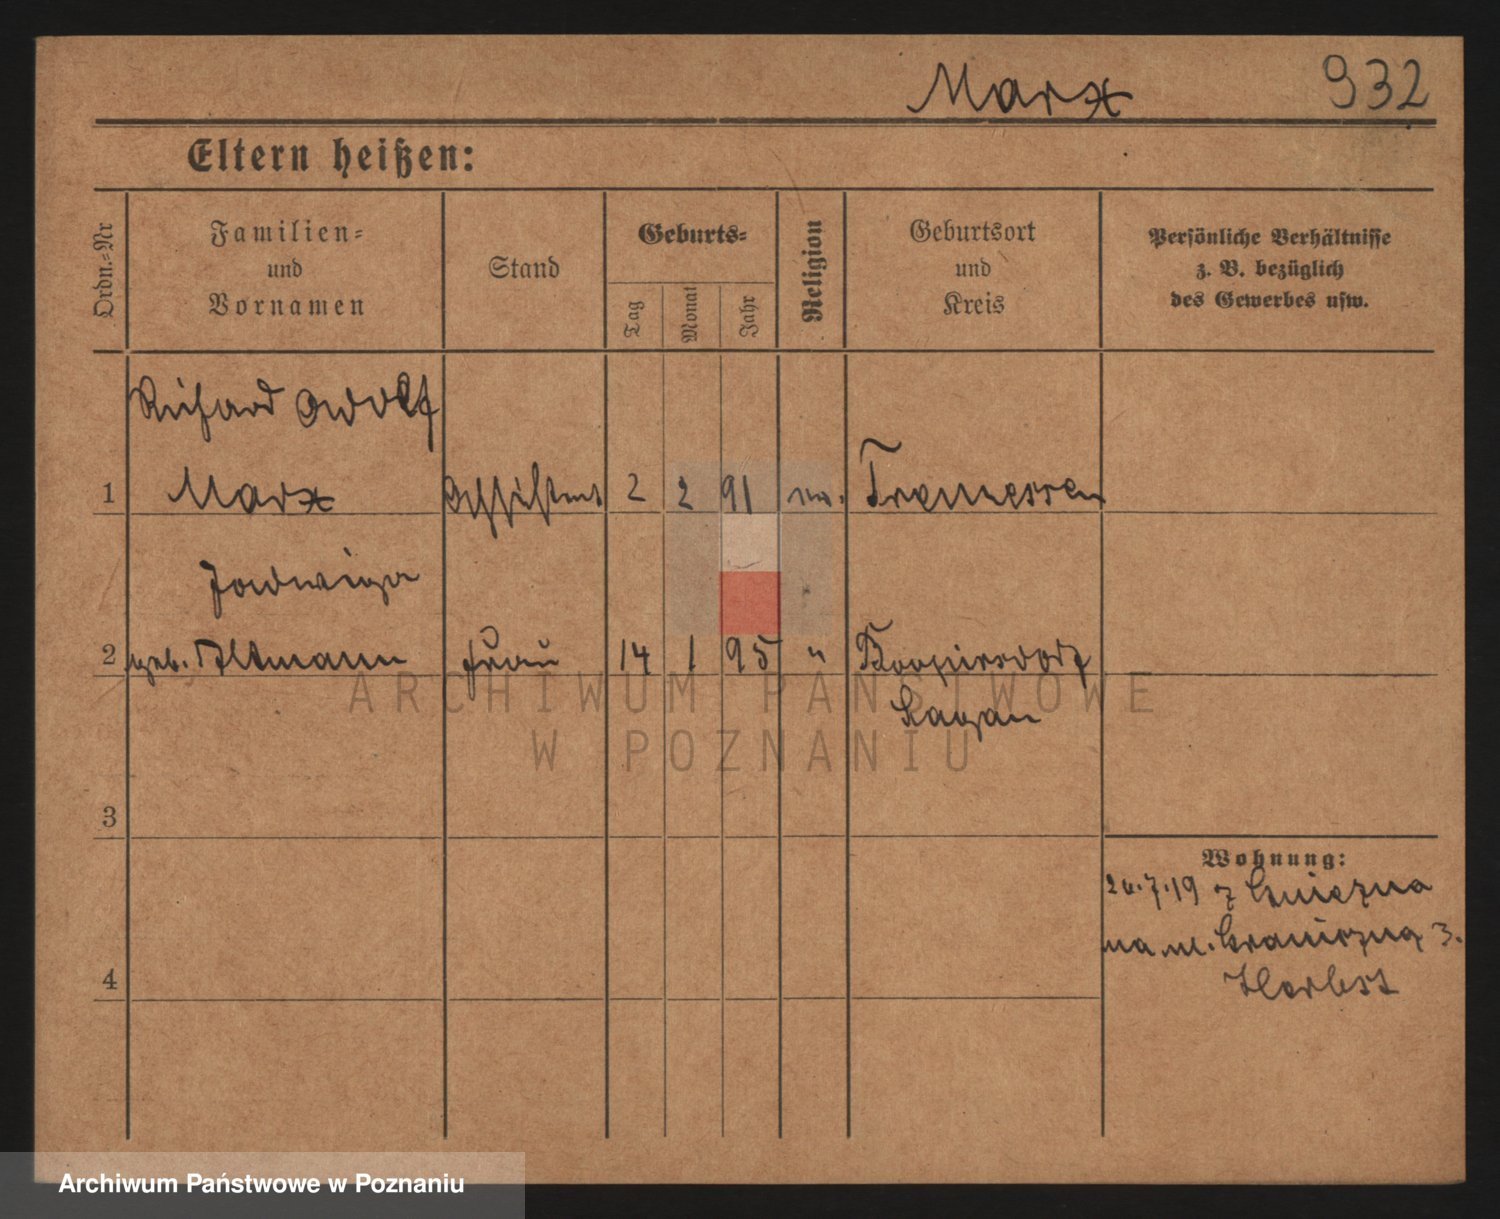 Marx 932
Eltern heißen:
Ordn.-Nr
Familien-
und
Vornamen
Stand
Geburts-
Tag
Monat
Jahr
Religion
Geburtsort
und
Kreis
Persönliche Verhältnisse
z. B. bezüglich
des Gewerbes usw.
Richard Adolf
1 Marx Assistent 2 2 91 ev. Tremessen
Jadwiga
2 geb. Altmann Frau 14 1 95 "
Sagan
3
Wohnung:
7.19 z Gniezna
na 3.
Herbst
4
ARCHIWUM PAŃSTWOWE
W POZNANIU
Archiwum Państwowe w Poznaniu